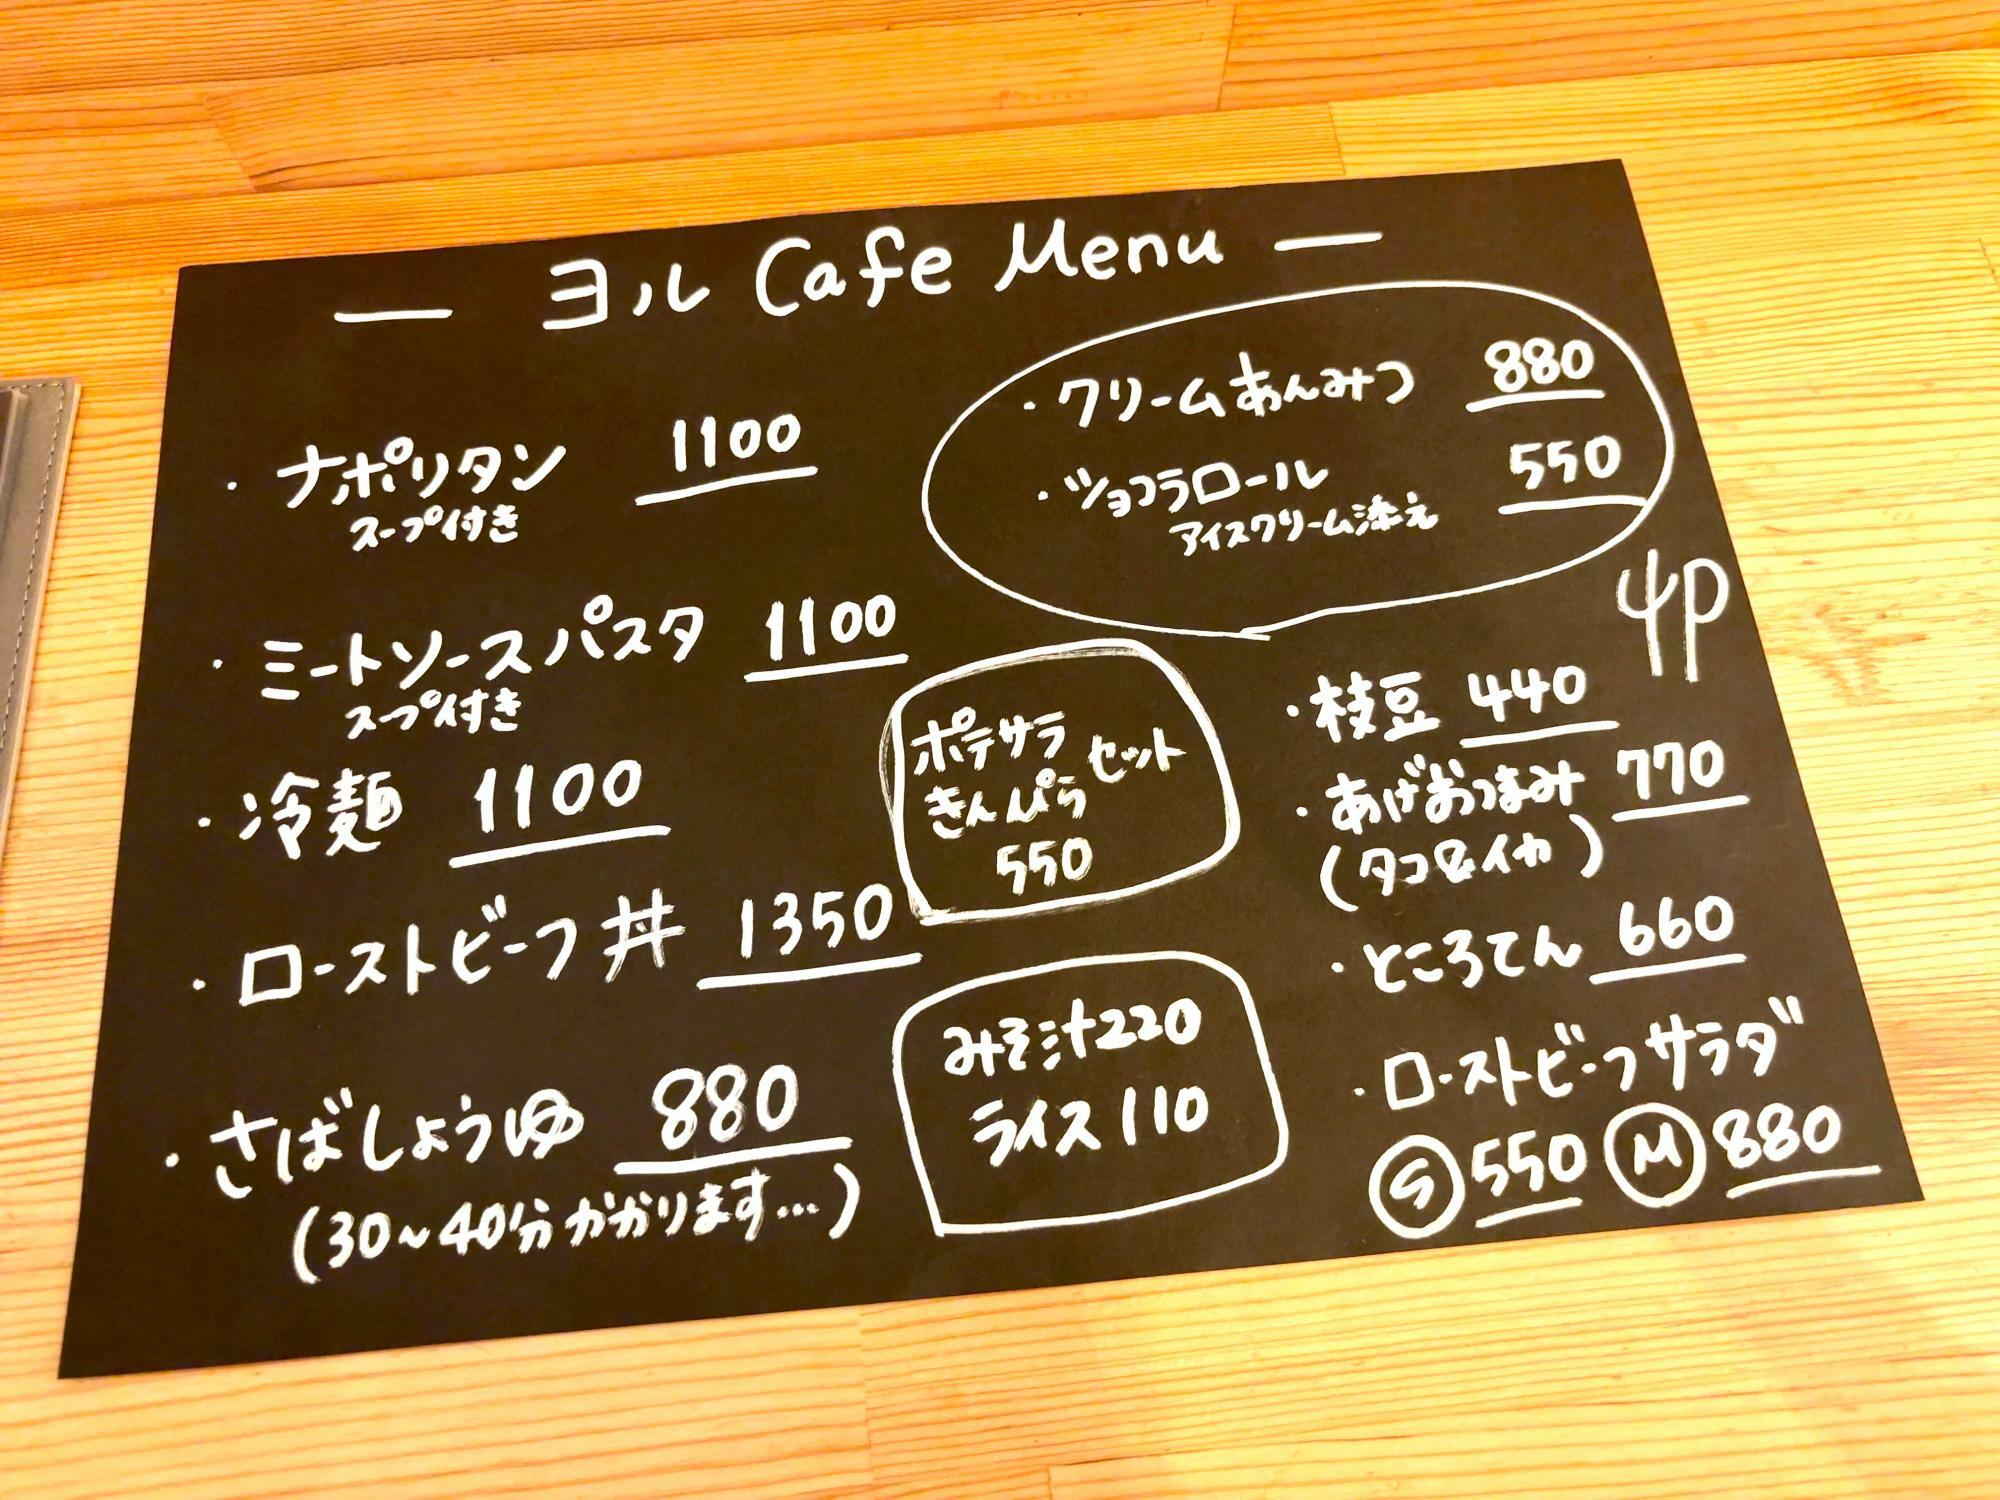 ー ヨル Cafe Menu ー
・ナポリタン 1100
スープ付き
・ミートソースパスタ 1100
スープ付き
・冷麺 1100
・ローストビーフ丼 1350
・さばしょうゆ 880
(30〜40分かかります…)
・クリームあんみつ 880
・ショコラロール 550
アイスクリーム添え
ポテサラ
きんぴら セット
550
みそ汁220
ライス110
4P
・枝豆 440
・あげおつまみ 770
(タコ&イカ)
・ところてん 660
・ローストビーフサラダ
Ⓢ550 Ⓜ880